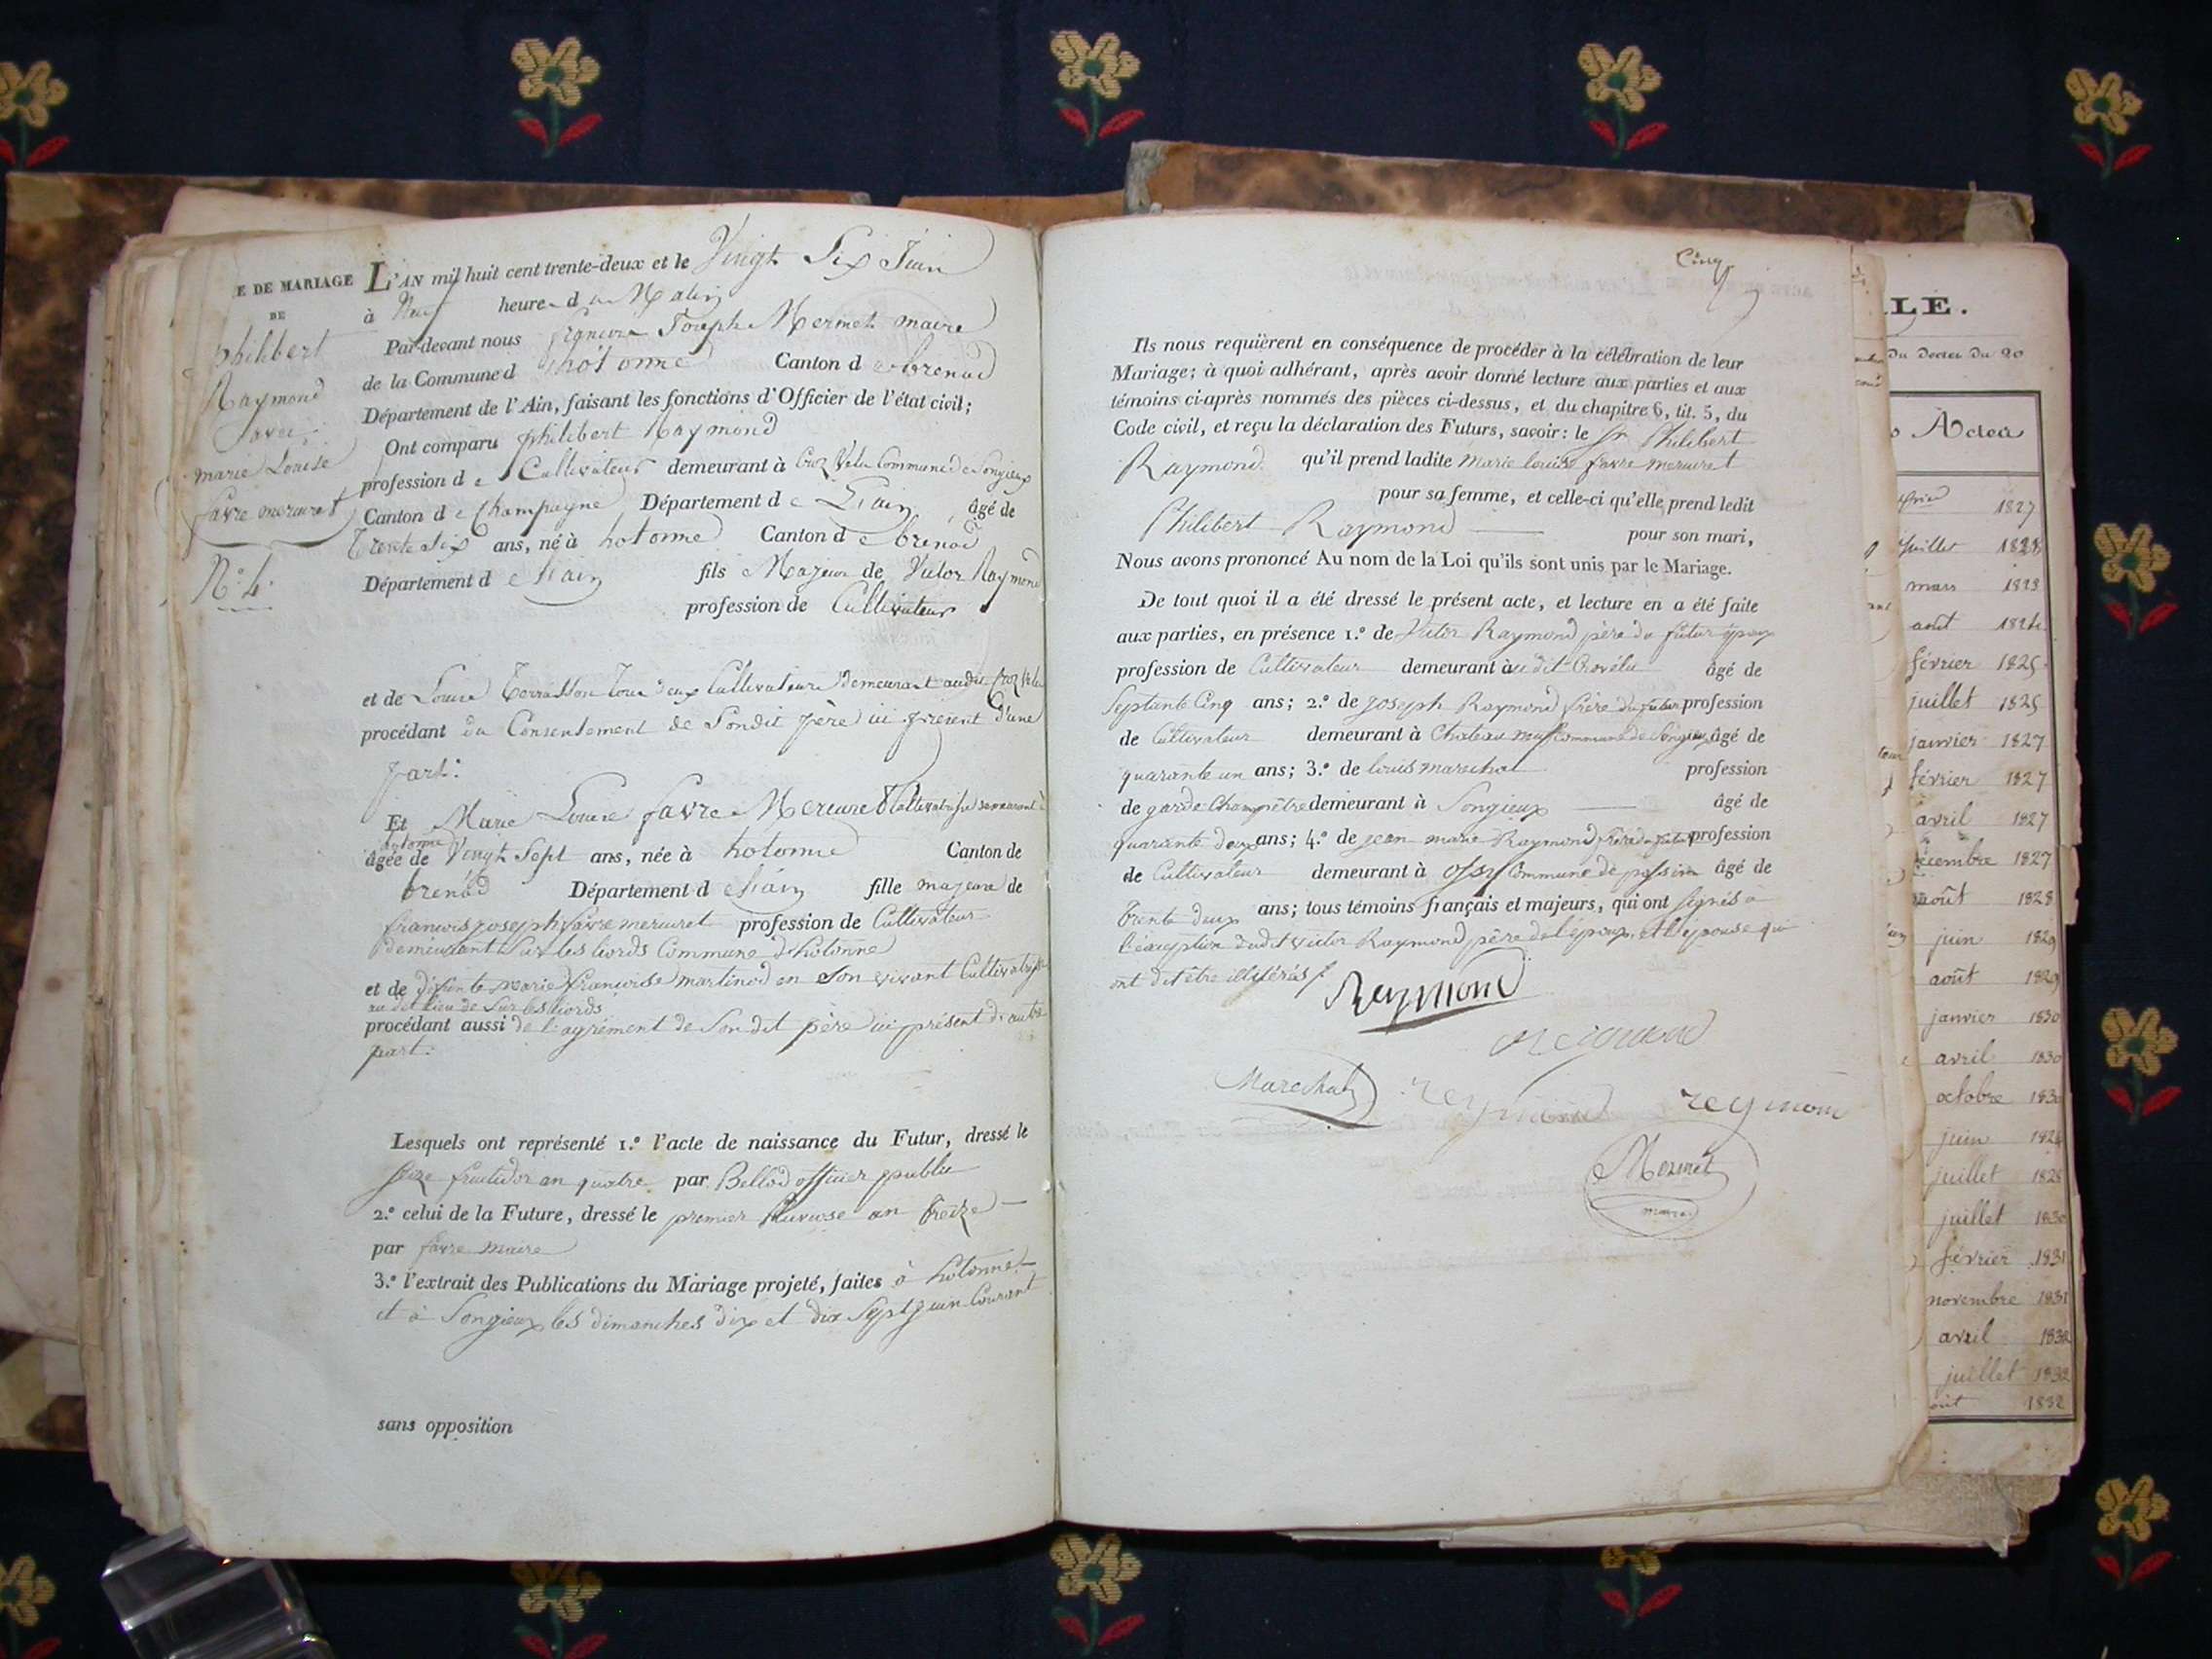 E DE MARIAGE
DE
philibert
Raymond
avec
marie Louise
favre mercuret
N.° 4.
L'AN mil huit cent trente-deux et le Vingt Six Juin
à Neuf heure du Matin
Par-devant nous françois Joseph Mermet maire
de la Commune d hotonne Canton de brenod
Département de l'Ain, faisant les fonctions d'Officier de l'état civil;
Ont comparu philibert Raymond
profession de Cultivateur demeurant à Croz Velu Commune de Songieux
Canton de Champagne Département de L'ain âgé de
Trente Six ans, né à hotonne Canton de brenod
Département de l'ain fils Majeur de Victor Raymond
profession de Cultivateur
et de Louise Terrasson tous deux Cultivateurs demeurant audit Croz Velu
procédant du Consentement de Sondit père ici présent d'une
part.
Et Marie Louise favre Mercuret Cultivatrice demeurant à
hotonne
âgée de Vingt Sept ans, née à hotonne Canton de
brenod Département de l'ain fille majeure de
françois joseph favre mercuret profession de Cultivateur
demeurant Sur les liords Commune d'hotonne
et de défunte marie françoise martinod en Son vivant Cultivatrice
au dit lieu de Sur les liords
procédant aussi de l'agrément de Son dit père ici présent d'autre
part.
Lesquels ont représenté 1.° l'acte de naissance du Futur, dressé le
Seize fructidor an quatre par Bellod officier public
2.° celui de la Future, dressé le premier Pluviose an treize
par favre maire
3.° l'extrait des Publications du Mariage projeté, faites à hotonne
et à Songieux les dimanches dix et dix Sept juin Courant
sans opposition
Cinq
Ils nous requièrent en conséquence de procéder à la célébration de leur
Mariage; à quoi adhérant, après avoir donné lecture aux parties et aux
témoins ci-après nommés des pièces ci-dessus, et du chapitre 6, tit. 5, du
Code civil, et reçu la déclaration des Futurs, savoir: le Sr Philibert
Raymond qu'il prend ladite Marie louise favre mercuret
pour sa femme, et celle-ci qu'elle prend ledit
Philibert Raymond pour son mari,
Nous avons prononcé Au nom de la Loi qu'ils sont unis par le Mariage.
De tout quoi il a été dressé le présent acte, et lecture en a été faite
aux parties, en présence 1.° de Victor Raymond père du futur époux
profession de Cultivateur demeurant àu dit Crovélu âgé de
Septante Cinq ans; 2.° de joseph Raymond frère du futur profession
de Cultivateur demeurant à Chateau Commune de Songieux âgé de
quarante un ans; 3.° de louis marechal profession
de garde Champêtre demeurant à Songieux âgé de
quarante deux ans; 4.° de jean marie Raymond frère du futur profession
de Cultivateur demeurant à ossy Commune de passin âgé de
Trente deux ans; tous témoins français et majeurs, qui ont signés à
l'éxception dudit Victor Raymond père de l'époux, et l'épouse qui
ont dit être illitérés
Raymond
Reymond
Marechal reymond reymon
Mermet
maire
LE.
Du Decret Du 20
Actes
1827
juillet 1828
mars 1823
août 1824
février 1825
juillet 1825
janvier 1827
février 1827
avril 1827
décembre 1827
août 1828
juin 1829
août 1829
janvier 1830
avril 1830
octobre 1830
juin 1826
juillet 1828
juillet 1830
février 1831
novembre 1831
avril 1832
juillet 1832
1832